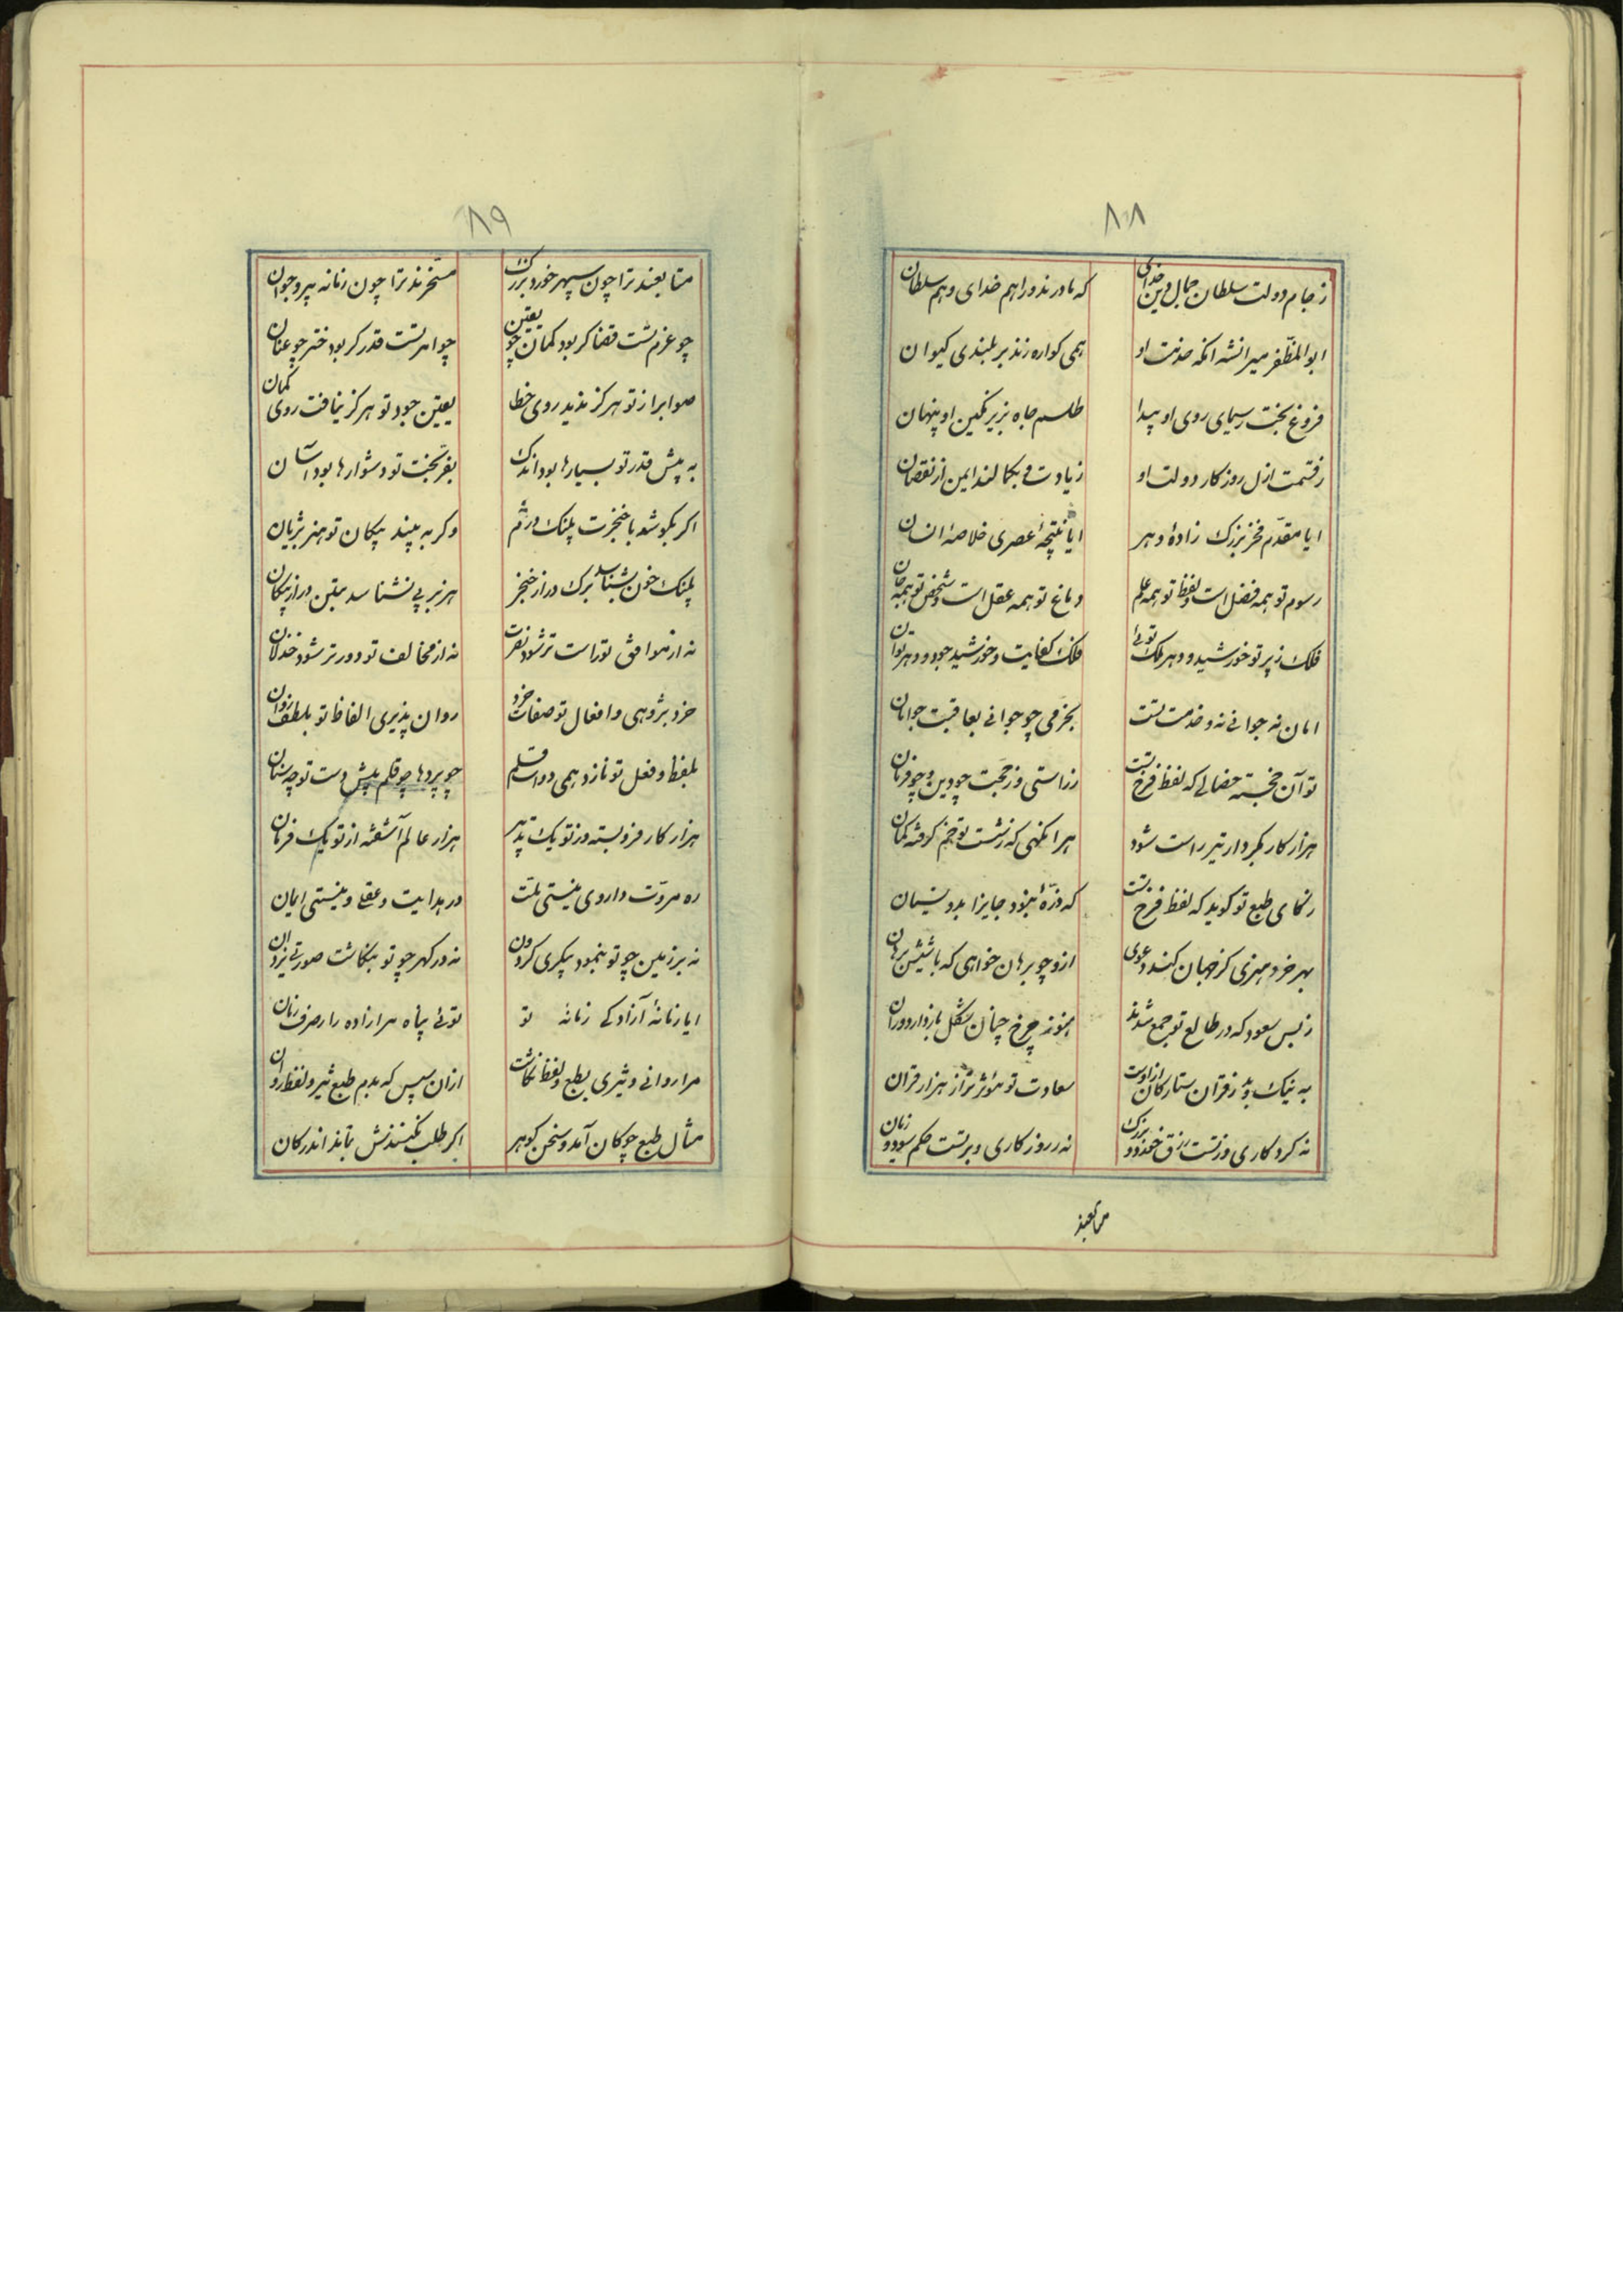 ۸۸
ز جام دولت سلطان جمال دین خدای
که یاورند ورا هم خدای و هم سلطان
ابوالمظفر میرانشه انکه خدمت او
همی کواره زند بر بلندی کیوان
فروغ بخت بسیمای روی او پیدا
طلسم جاه بزیر نکین او پنهان
ز قسمت ازل روزکار دولت او
زیادت و بکمالند ایمن از نقصان
ایا مقدم فخر بزرک زادهٔ دهر
ایا نتیجهٔ عصری خلاصهٔ انسان
رسوم تو همه فضل است و لفظ تو همه علم
دماغ تو همه عقل است و شخص تو همه جان
فلک ز پر تو خورشید و دهر ملک توئی
فلک کفایت و خورشید جود و دهر توان
امان نه جوانی نه و خدمت تست
بخرمی چو جوانی بعاقبت چو امان
تو آن خجسته خصالی که لفظ فرخ تست
ز راستی و ز حجت چو دین و چو فرمان
هزار کار بکردار تیر راست شود
هر انکهی که ز شست تو خم کرفته کمان
رنمای طبع تو کوید که لفظ فرخ تست
که ذرهٔ نبود جایز اندرو نسیان
بهر خرد هنری کز جهان کند دعوی
ازو چو برهان خواهی که باشدش برهان
ز بس سعود که در طالع تو جمع شدند
هنوز چرخ چنان شکل باز دارد دوران
به نیک و بد ز قران ستارکان از اوست
سعادت تو مؤثر تر از هزار قران
نه کردکاری و ز تست رزق خرد و بزرک
نه روزکاری و بر تست حکم سود و زیان
متابعند
۸۹
متابعند ترا چون سپهر خورد و بزرک
مسخرند ترا چون زمانه پیر و جوان
چو عزم تست قضا کر بود کمان چو یقین
چو امر تست قدر کر بود خبر چو عیان
صوابرا ز تو هرکز ندید روی خطا
یقین جود تو هرکز نیافت روی کمان
به پیش قدر تو بسیارها بود اندک
بفر بخت تو دشوارها بود آسان
اکر بکوشد با خنجرت پلنک دژم
وکر به بیند پیکان تو هزبر ژیان
پلنک خون بشناسد برک در از خنجر
هزبر پی نشناسد بتن در از پیکان
نه از موافق تو راست تر شود نصرت
نه از مخالف تو دورتر شود خذلان
خرد پژوهی و افعال تو صفات خرد
روان پذیری الفاظ تو بلطف روان
بلفظ و فعل تو نازد همی دوات و قلم
چو پردها چو قلم پیش دست تو چه سنان
هزار کار فروبسته وز تو یک تدبیر
هزار عالم آشفته از تو یک فرمان
ره مروت و داروی نیستی ملت
در هدایت و عقلی و نیستی ایمان
نه بر زمین چو تو بنمود پیکری کردون
نه در کهر چو تو بنکاشت صورتی یزدان
ایا زمانهٔ آزادکی زمانهٔ تو
توئی پناه مر ازاده را ز صرف زمان
مرا روانی و شیری بطبع و لفظ نکاشت
ازان سپس که بدم طبع شیر و لفظ روان
مثال طبع چو کان آمد و سخن کوهر
اکر طلب نکنندش بماند اندر کان